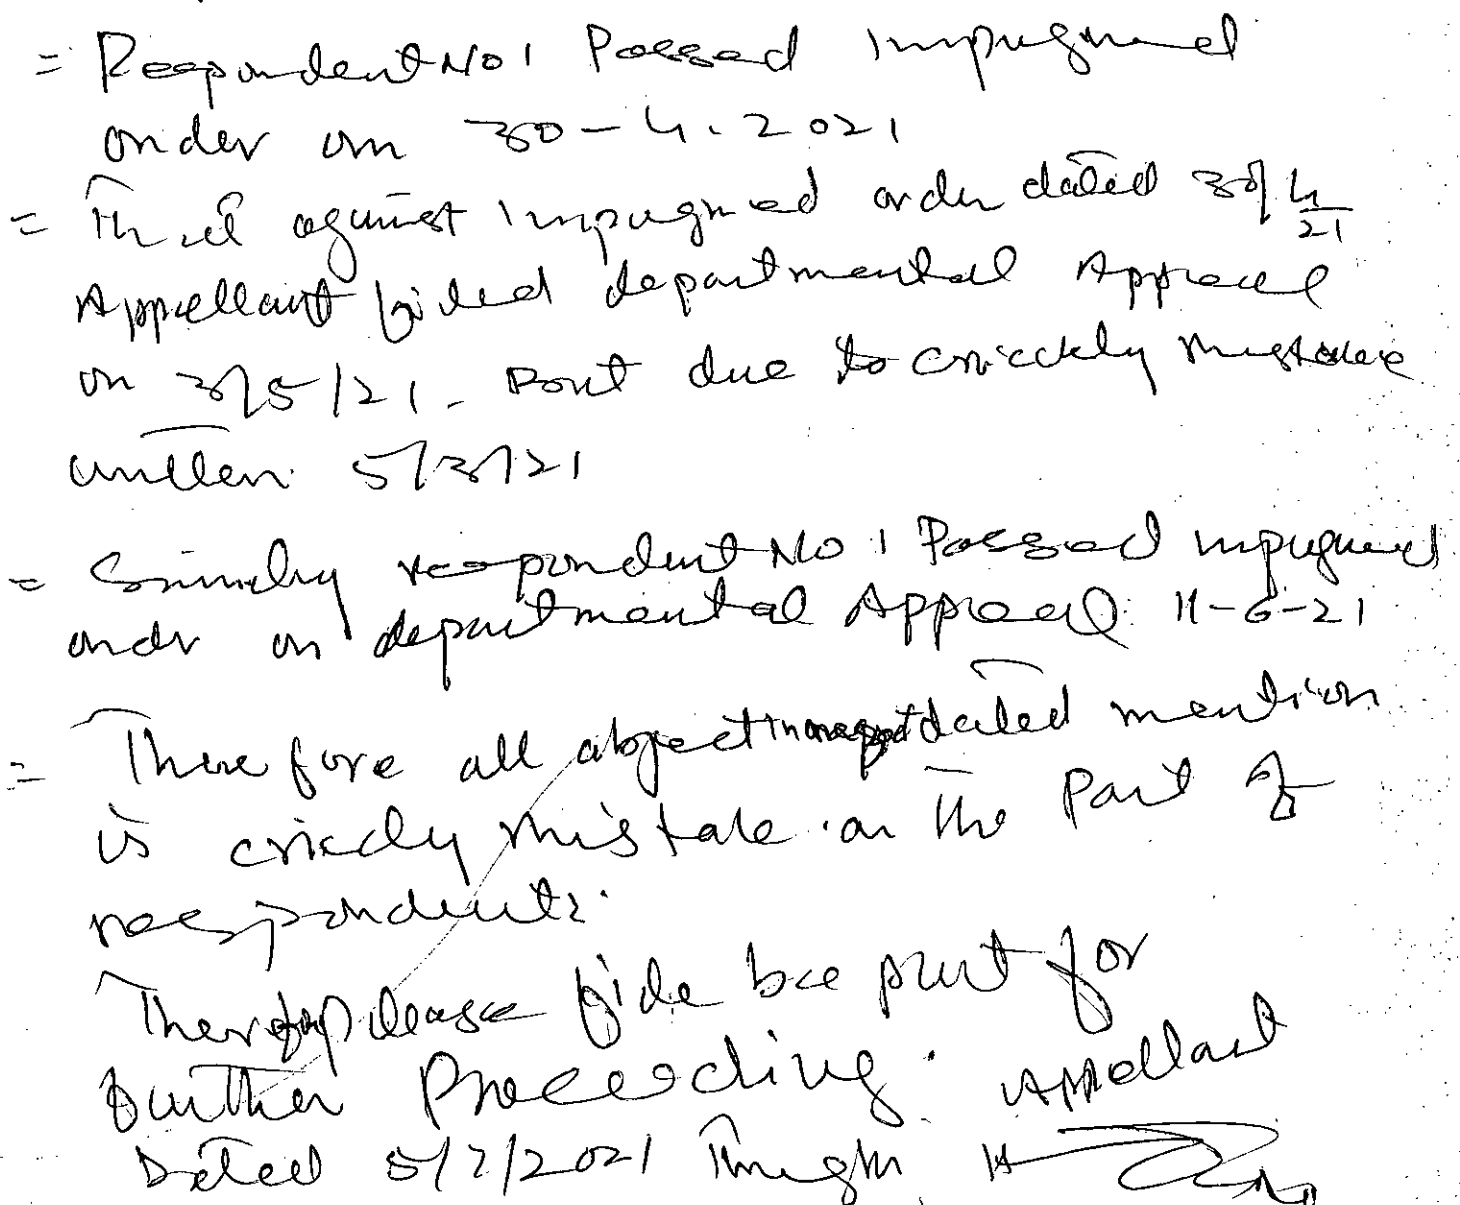 = Respondent No 1 Passed Impugned
order on 30-4-2021
= That against Impugned order dated 30/4/21
Appellant filed departmental Appeal
on 3/5/21. But due to mistake
written 5/3/21
= respondent No 1 Passed impugned
order on departmental Appeal 11-6-21
= Therefore all dated mention
is mistake on the Part of
respondents.
please file be put for
further Proceeding. Appellant
Dated 5/7/2021 Through